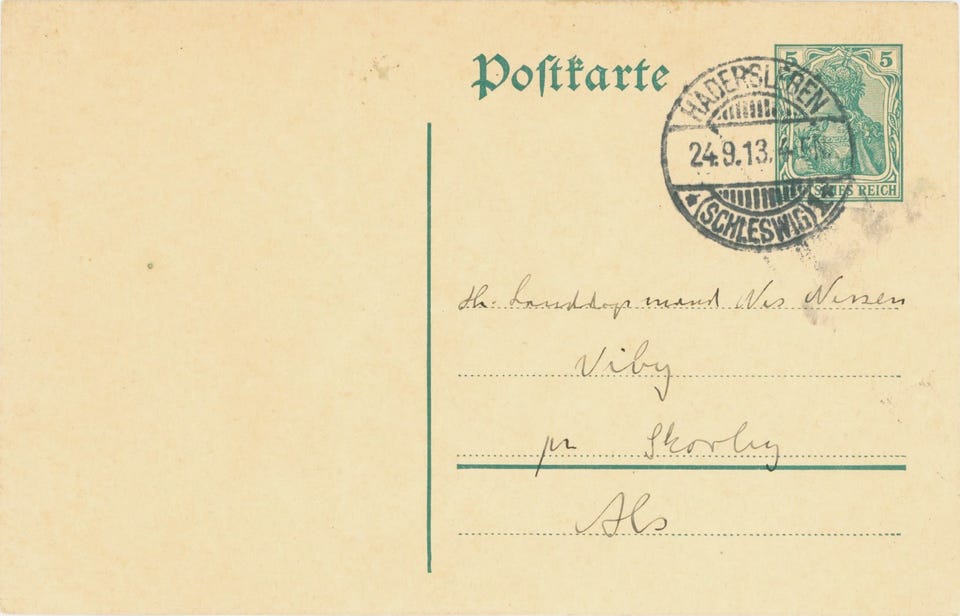 Postkarte
5 5
HADERSLEBEN
24.9.13. 4-5N.
REICH
* (SCHLESWIG)
Hr: Landdagsmand Nis Nissen
Viby
pr Skovby
Als